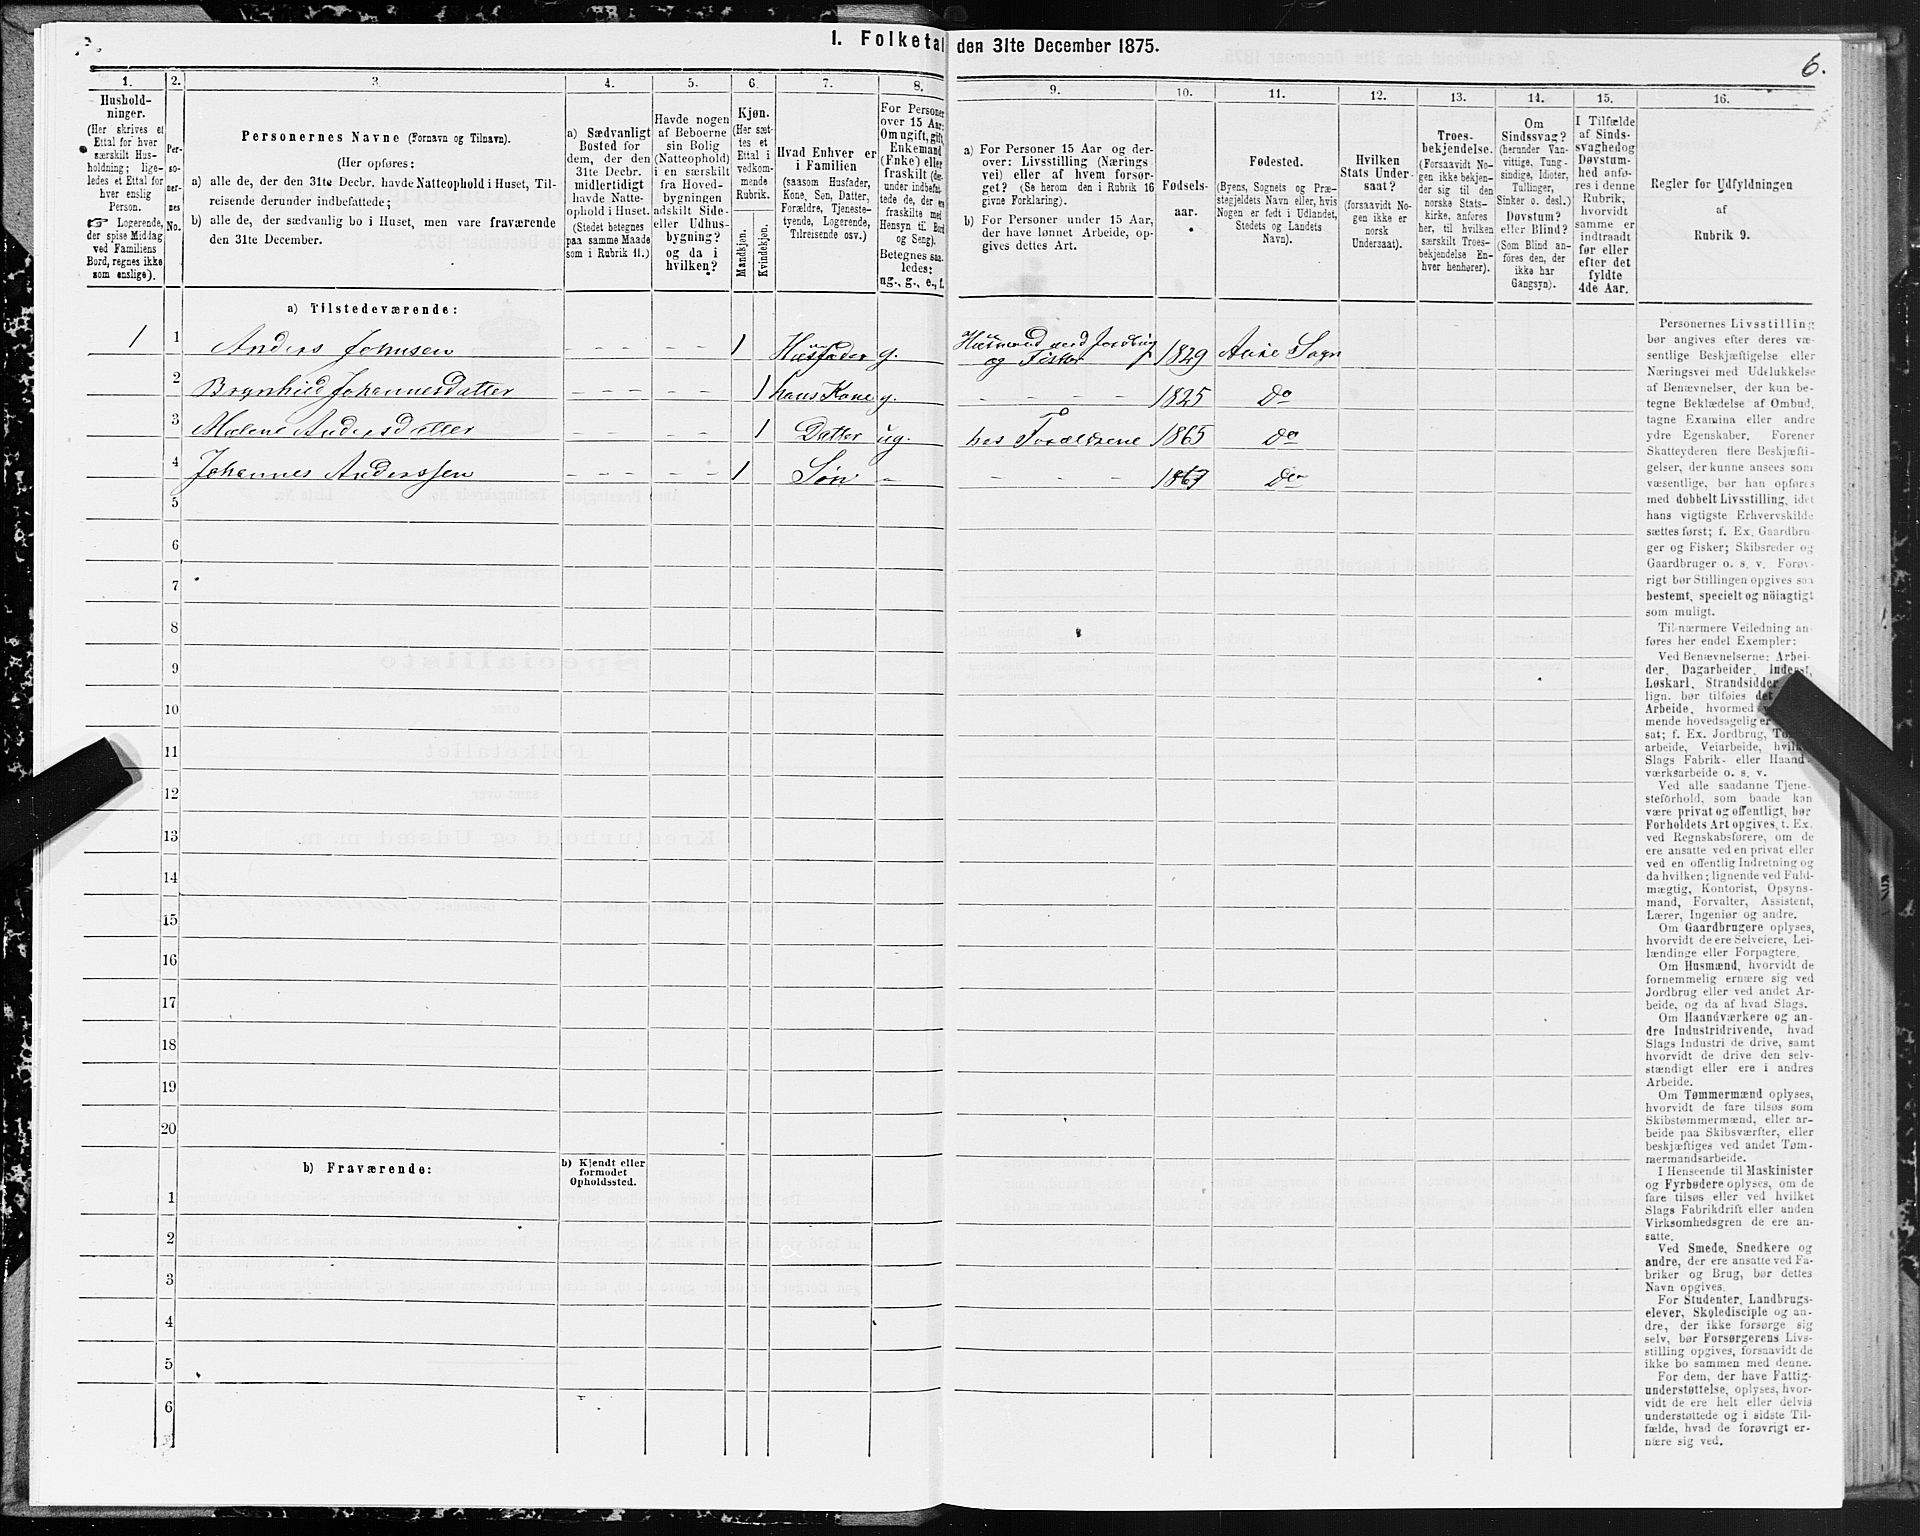 1. Folketal den 31te December 1875.
6.
1.
2.
3.
4.
5.
6.
7.
8.
9.
10.
11.
12.
13.
14.
15.
16.
Hushold-
ninger.
(Her skrives et
Ettal for hver
særskilt Hus-
holdning; lige-
ledes et Ettal for
hver enslig
Person.
☞ Logerende,
der spise Middag
ved Familiens
Bord, regnes ikke
som enslige).
Per-
so-
ner-
nes
No.
Personernes Navne (Fornavn og Tilnavn).
(Her opføres:
a) alle de, der den 31te Decbr. havde Natteophold i Huset, Til-
reisende derunder indbefattede;
b) alle de, der sædvanlig bo i Huset, men vare fraværende
den 31te December.
a) Sædvanligt
Bosted for
dem, der den
31te Decbr.
midlertidigt
havde Natte-
ophold i Huset.
(Stedet betegnes
paa samme Maade
som i Rubrik 11.)
Havde nogen
af Beboerne
sin Bolig
(Natteophold)
i en særskilt
fra Hoved-
bygningen
adskilt Side-
eller Udhus-
bygning?
og da i
hvilken?
Kjøn.
(Her sæt-
tes et
Ettal i
vedkom-
mende
Rubrik.
Mandkjøn.
Kvindekjøn.
Hvad Enhver er
i Familien
(saasom Husfader,
Kone, Søn, Datter,
Forældre, Tjeneste-
tyende, Logerende,
Tilreisende osv.)
For Personer
over 15 Aar:
Om ugift, gift,
Enkemand
(Enke) eller
fraskilt (der-
under indbefat-
tede de, der ere
fraskilte med
Hensyn til Bord
og Seng).
Betegnes saa-
ledes:
ug., g., e., f.
a) For Personer 15 Aar og der-
over: Livsstilling (Nærings
vei) eller af hvem forsør-
get? (Se herom den i Rubrik 16
givne Forklaring).
b) For Personer under 15 Aar,
der have lønnet Arbeide, op-
gives dettes Art.
Fødsels-
aar.
Fødested.
(Byens, Sognets og Præ-
stegjeldets Navn, eller, hvis
Nogen er født i Udlandet,
Stedets og Landets
Navn).
Hvilken
Stats Under-
saat?
(forsaavidt No-
gen ikke er
norsk
Undersaat).
Troes-
bekjendelse.
(Forsaavidt No-
gen ikke bekjen-
der sig til den
norske Stats-
kirke, anføres
her, til hvilken
særskilt Troes-
bekjendelse En-
hver henhører).
Om
Sindssvag?
(herunder Van-
vittige, Tung-
sindige, Idioter,
Tullinger,
Sinker o. desl.)
Døvstum?
eller Blind?
(Som Blind an-
føres den, der
ikke har
Gangsyn).
I Tilfælde
af Sinds-
svaghed og
Døvstum-
hed anfø-
res i denne
Rubrik,
hvorvidt
samme er
indtraadt
før eller
efter det
fyldte
4de Aar.
Regler for Udfyldningen
af
Rubrik 9.
a) Tilstedeværende:
1 1 Anders Johnsen – – – – – 1 Husfader g. Husmand med Jordbrug og Fisker 1829 Aure Sogn
2 Brynhild Johannesdatter – – – – – – 1 hans Kone g. – – – – 1825 Do
3 Malene Andersdatter – – – – – – 1 Datter ug. hos Forældrene 1865 Do
4 Johannes Anderssen – – – – – – 1 Søn – – – – 1867 Do
5
6
7
8
9
10
11
12
13
14
15
16
17
18
19
20
b) Fraværende:
b) Kjendt eller
formodet
Opholdssted.
1
2
3
4
5
6
Personernes Livsstilling
bør angives efter deres væ-
sentlige Beskjæftigelse eller
Næringsvei med Udelukkelse
af Benævnelser, der kun be-
tegne Beklædelse af Ombud,
tagne Examina eller andre
ydre Egenskaber. Forener
Skatteyderen flere Beskjæfti-
gelser, der kunne ansees som
væsentlige, bør han opføres
med dobbelt Livsstilling, idet
hans vigtigste Erhvervskilde
sættes først; f. Ex. Gaardbru-
ger og Fisker; Skibsreder og
Gaardbruger o. s. v. Forøv-
rigt bør Stillingen opgives saa
bestemt, specielt og nöiagtigt
som muligt.
Til nærmere Veiledning an-
føres her endel Exempler:
Ved Benævnelserne: Arbei-
der, Dagarbeider, Inderst,
Løskarl, Strandsidder
lign. bør tilføies det
Arbeide, hvormed
mende hovedsagelig er
sat; f. Ex. Jordbrug,
arbeide, Veiarbeide,
Slags Fabrik- eller Haand-
værksarbeide o. s. v.
Ved alle saadanne Tjene-
steforhold, som baade kan
være privat og offentligt, bør
Forholdets Art opgives, t. Ex.
ved Regnskabsførere, om de
ere ansatte ved en privat eller
ved en offentlig Indretning og
da hvilken; lignende ved Fuld-
mægtig, Kontorist, Opsyns-
mand, Forvalter, Assistent,
Lærer, Ingeniør og andre.
Om Gaardbrugere oplyses,
hvorvidt de ere Selveiere, Lei-
lændinge eller Forpagtere.
Om Husmænd, hvorvidt de
fornemmelig ernære sig ved
Jordbrug eller ved andet Ar-
beide, og da af hvad Slags.
Om Haandværkere og an-
dre Industridrivende, hvad
Slags Industri de drive, samt
hvorvidt de drive den selv-
stændigt eller ere i andres
Arbeide.
Om Tømmermænd oplyses,
hvorvidt de fare tilsøs som
Skibstømmermænd, eller ar-
beide paa Skibsværfter, eller
beskjæftiges ved andet Tøm-
mermandsarbeide.
I Henseende til Maskinister
og Fyrbødere oplyses, om de
fare tilsøs eller ved hvilket
Slags Fabrikdrift eller anden
Virksomhedsgren de ere an-
satte.
Ved Smede, Snedkere og
andre, der ere ansatte ved Fa-
briker og Brug, bør dettes
Navn opgives.
For Studenter, Landbrugs-
elever, Skoledisciple og an-
dre, der ikke forsørge sig
selv, bør Forsørgerens Livs-
stilling opgives, forsaavidt de
ikke bo sammen med denne.
For dem, der have Fattig-
understøttelse, oplyses, hvor-
vidt de ere helt eller delvis
understøttede og i sidste Til-
fælde, hvad de forøvrigt er-
nære sig ved.